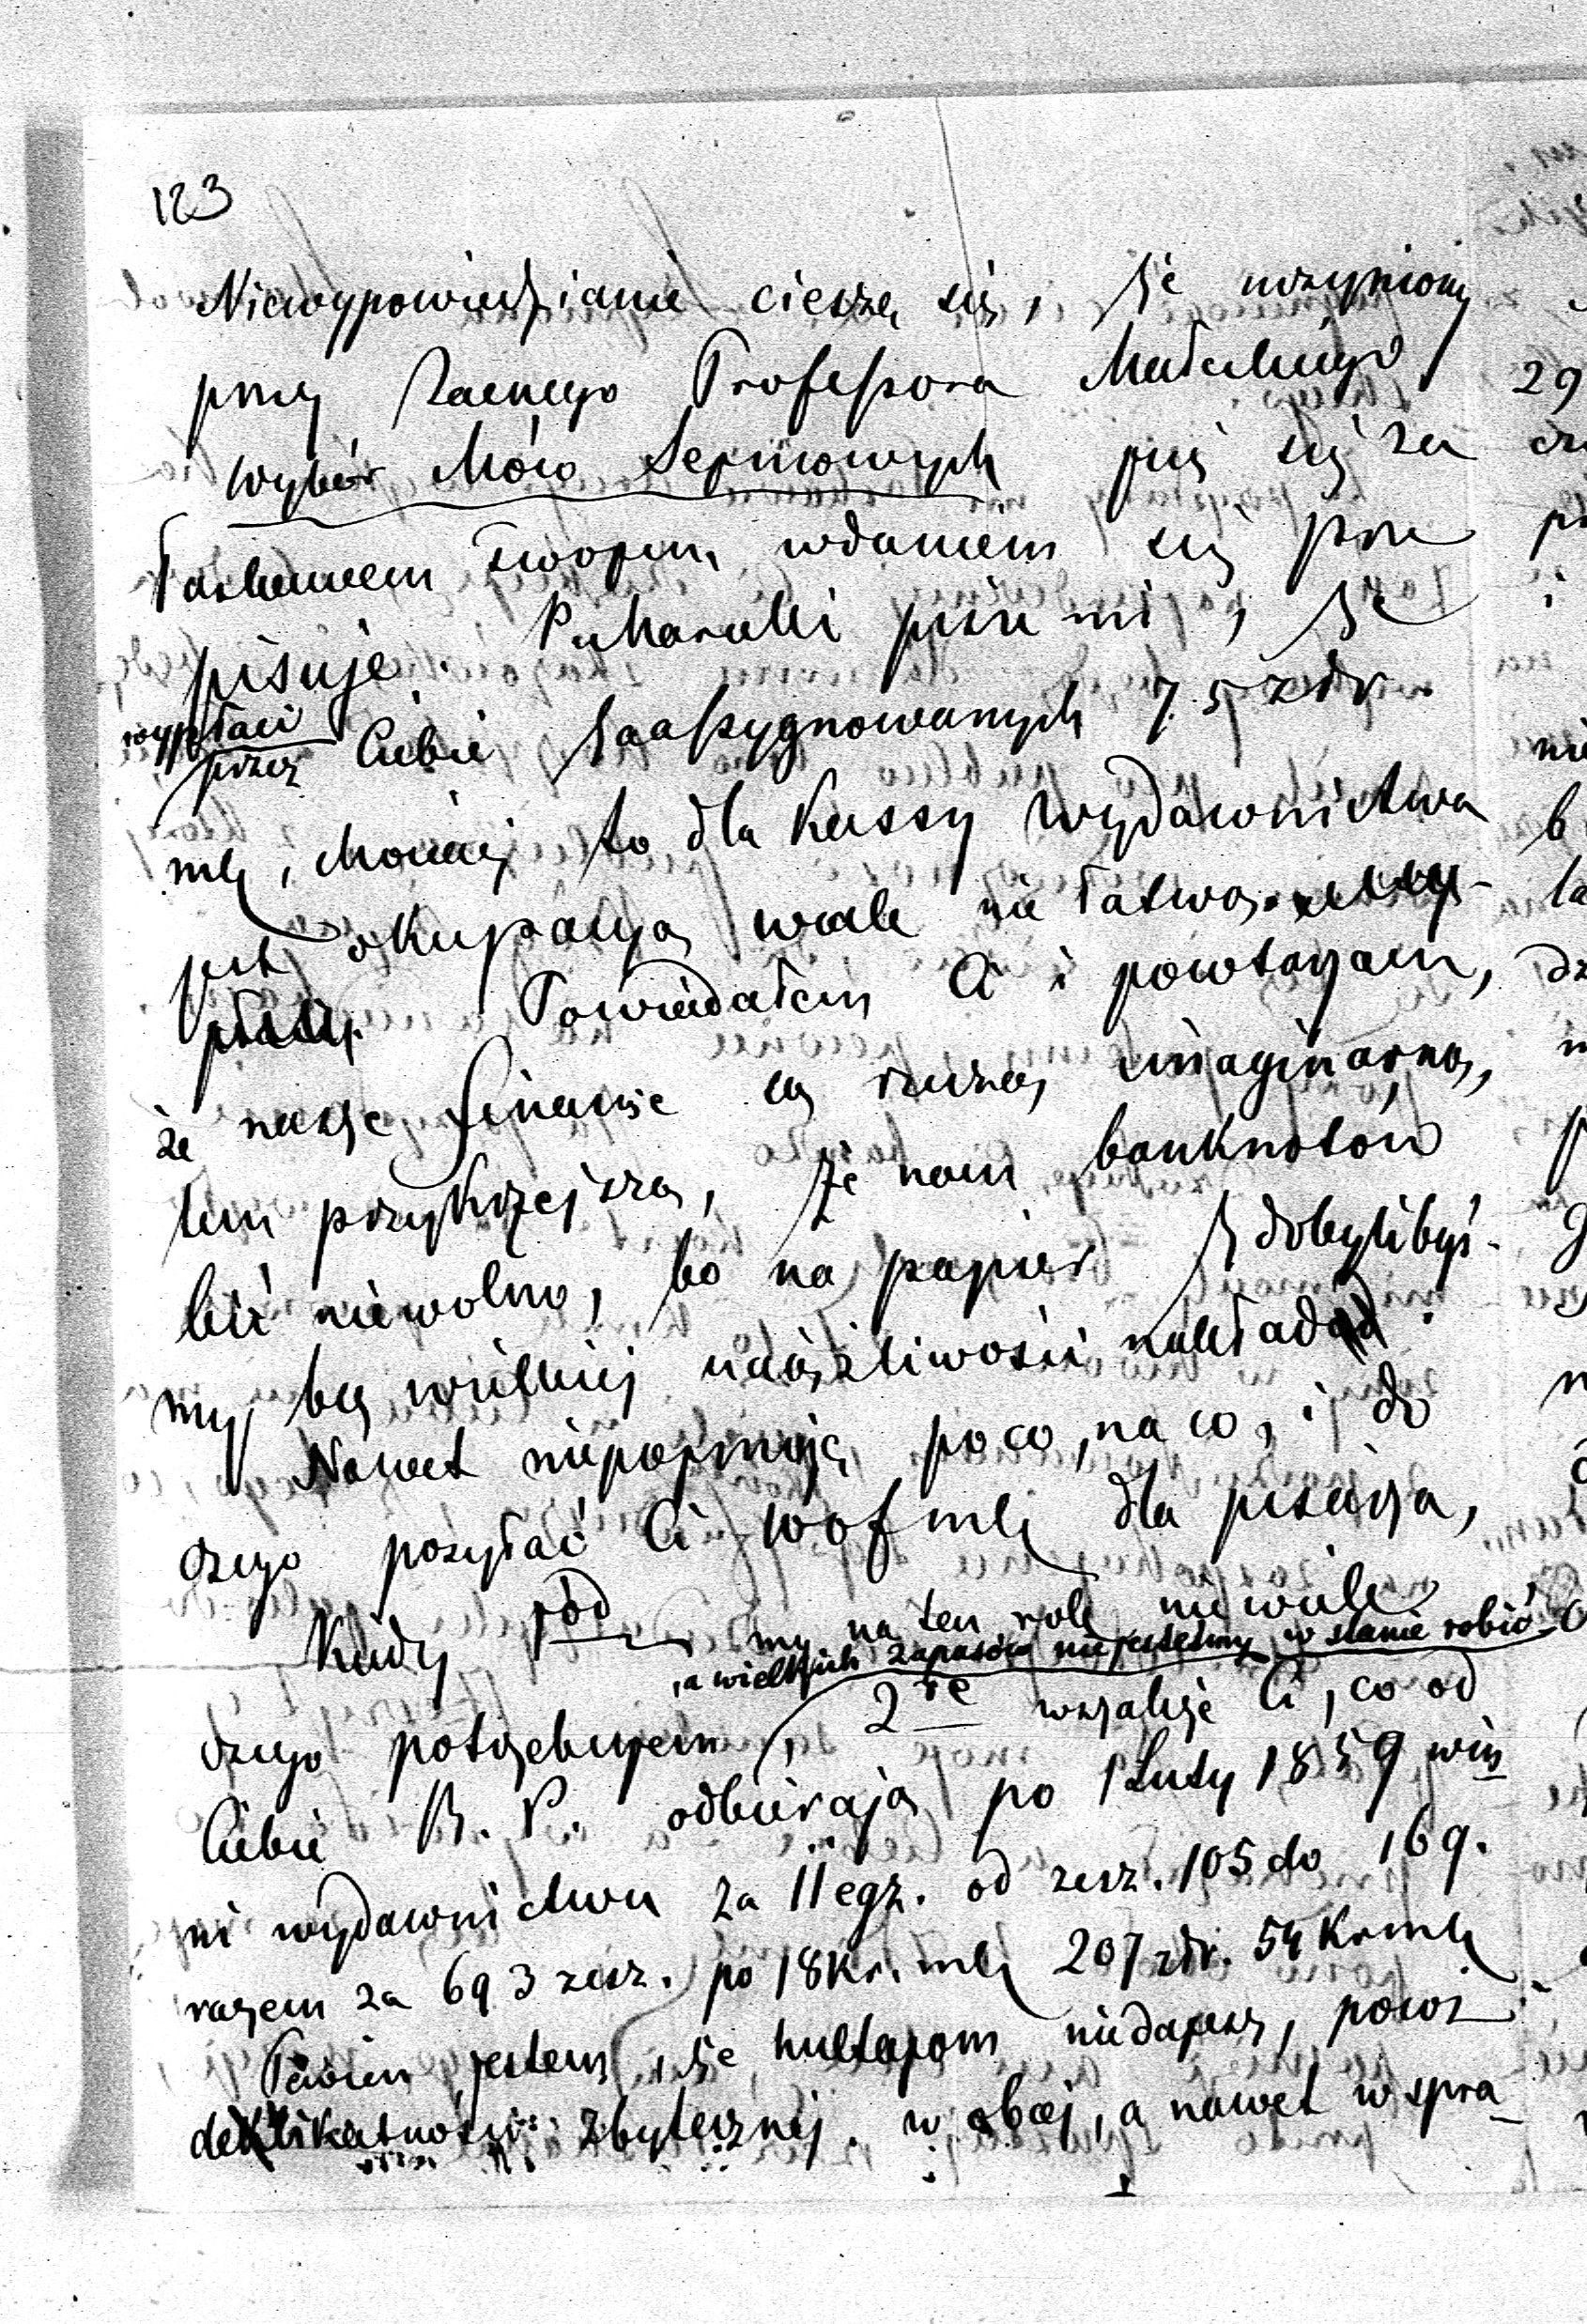 123
Niewypowiedzianie cieszę się, że uczyniony
przez zacnego Professora Małeckiego
wybór Mów Sejmowych
Twojem, wdaniem się
pisuje. pisze mi, że
wypłaci
przez Ciebie zaassygnowanych 75 złr.
mk, Mociej to dla Kassy wydawnictwa
jest okupacya wcale nie łatwa.
Powiedałem Ci i powtarzam,
że nasze finanse są rzeczą imaginarną,
tem przykrzejszą, że nam banknotów
bić niewolno, bo na papier zdobylibyś-
my bez wielkiej uciążliwości nakład.
Nawet niepojmuję poco, na co, i do
czego posyłać Ci mk dla pisarza,
Kiedy my na ten rok niewiele
, a wielkich zapasów niejesteśmy w stanie robić
czego potrzebujem, 2re wszakże Ci, co od
Ciebie B. P. odbierają po 1 Luty 1859 win
ni wydawnictwu za 11 egz. od zesz. 105 do 169.
razem za 693 zesz. po 18 kr. mk 207 złr. 54 Kr mk
Pewien jestem, że hultajom niedajesz, powoz
delikatności zbytecznej w obcej, a nawet w spra